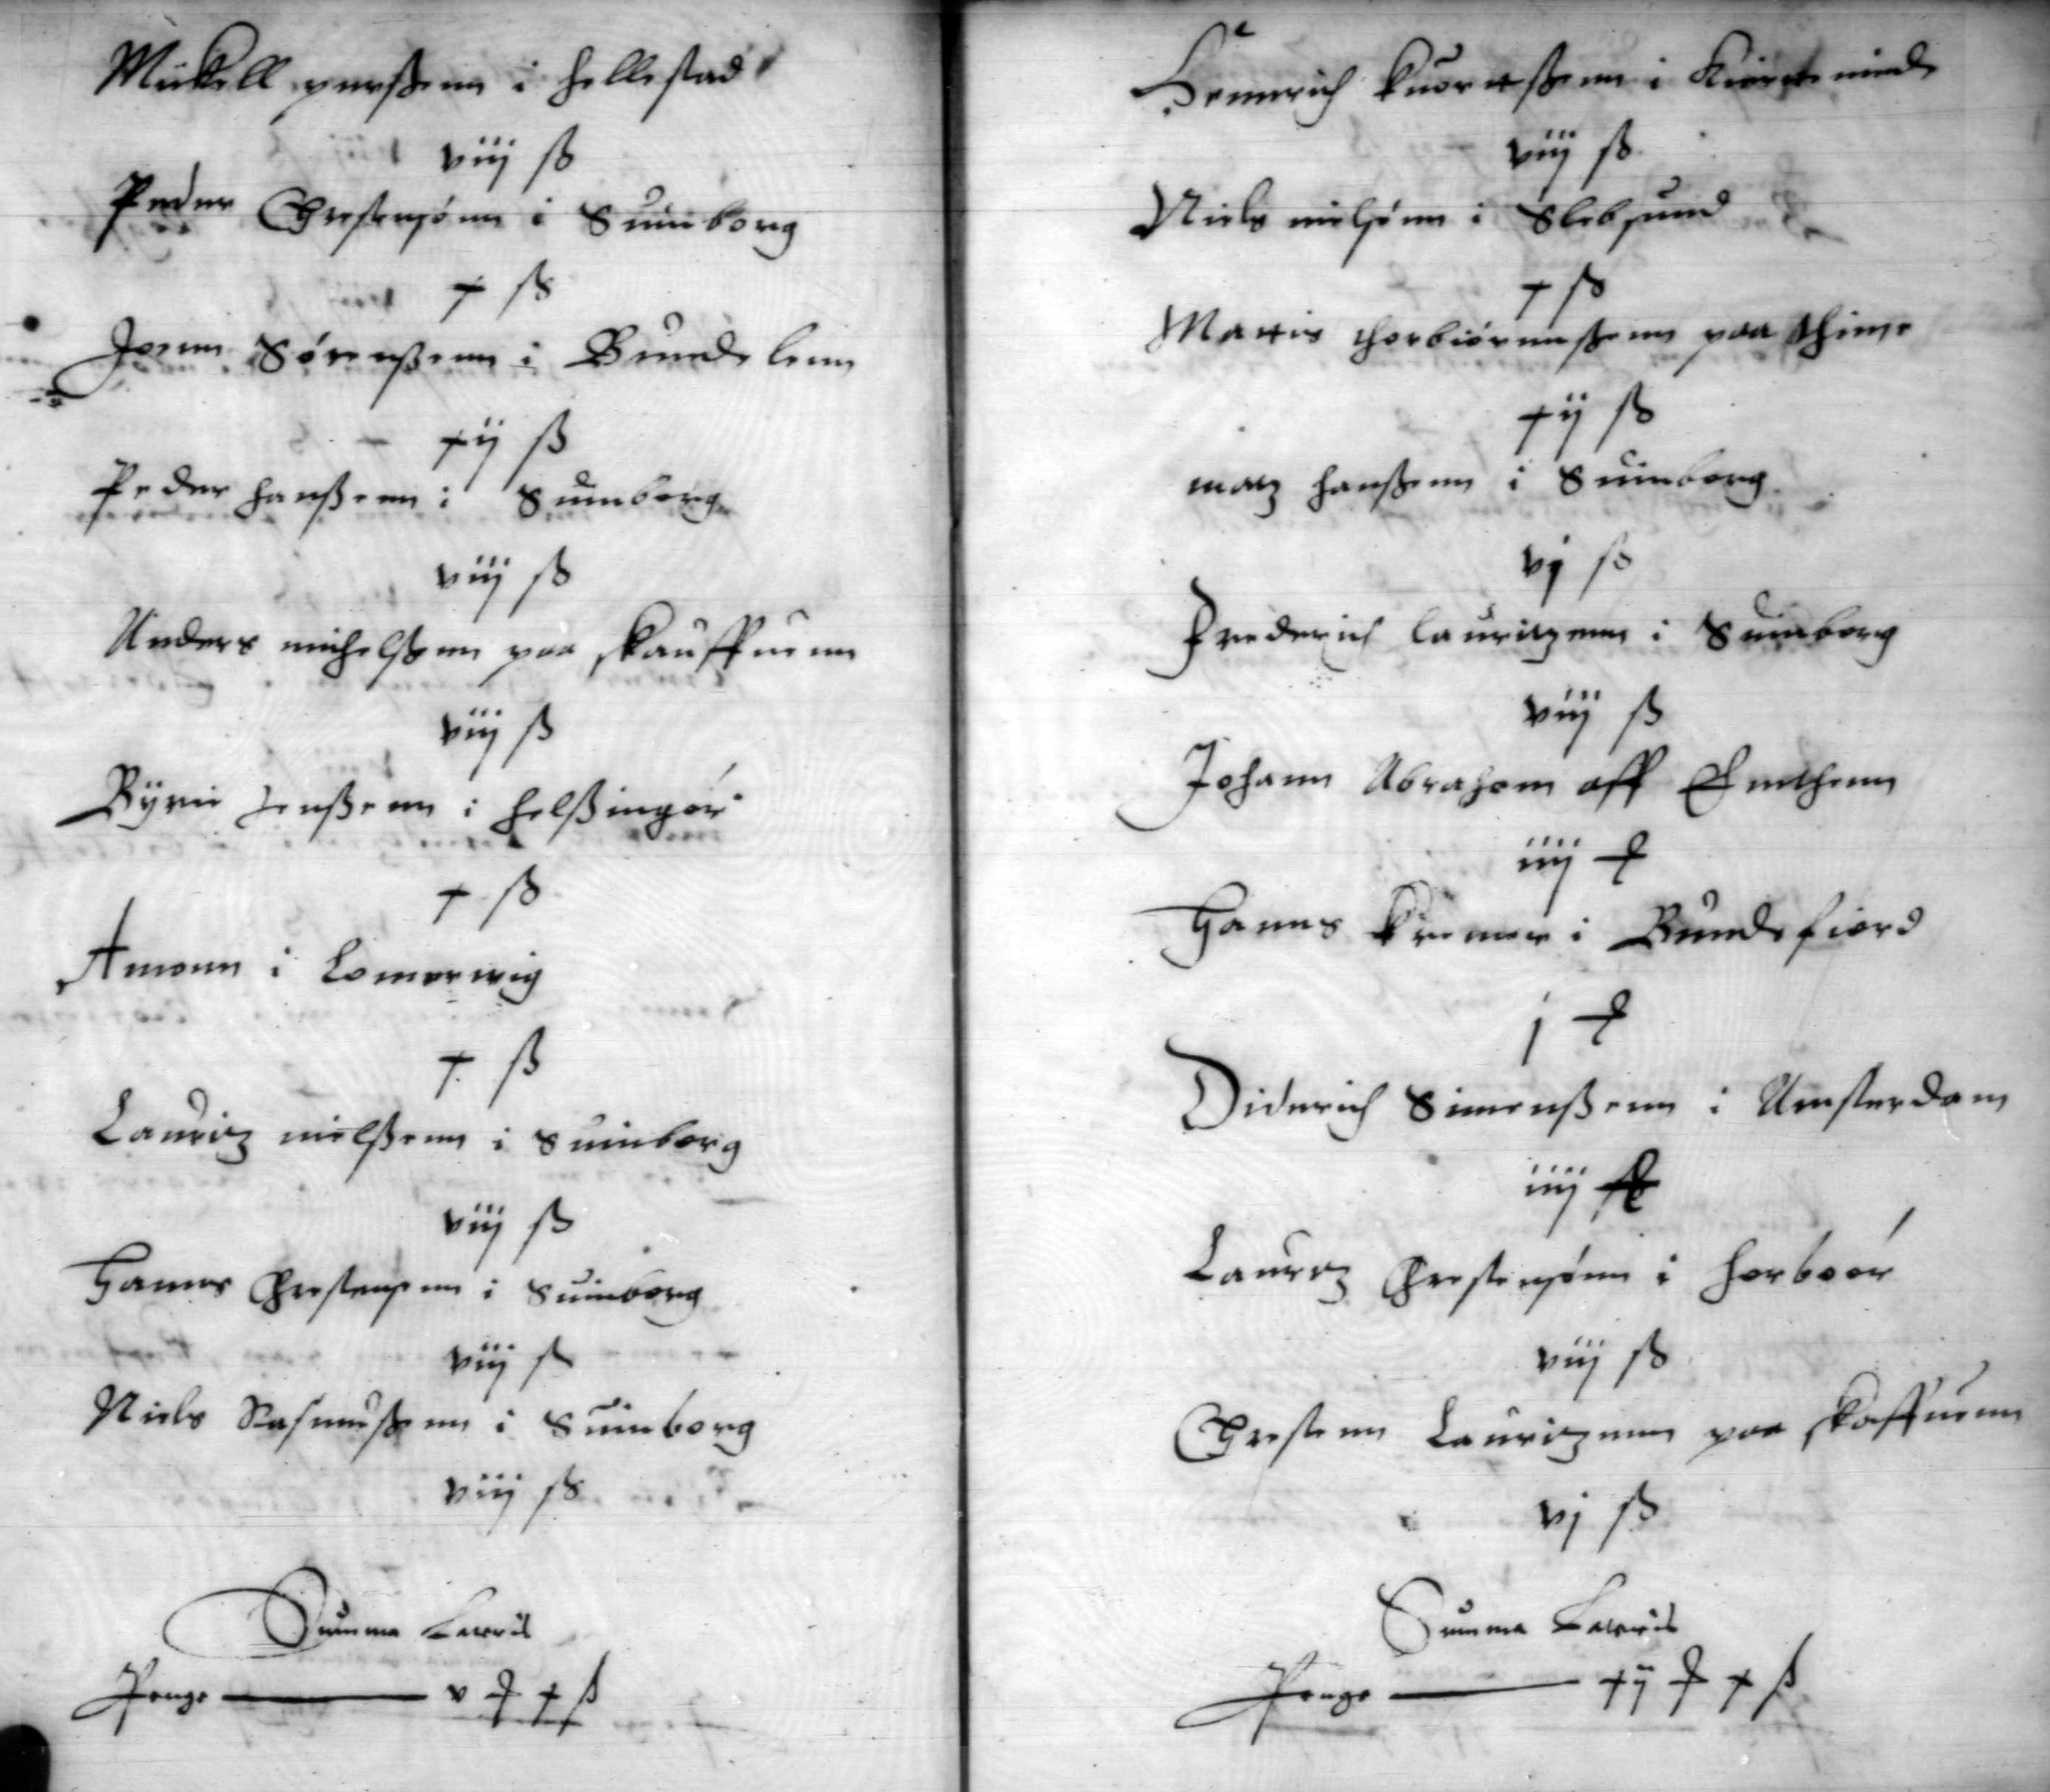 Mickell perßenn i hellestad
viij ß
Peder Chrestensønn i Suinborg
x ß
Joenn Sørenßenn i Bundelenn
xij ß
Peder hanßenn i Suinborg
viij ß
Anders michelßenn paa skauffuenn
viij ß
Byrri Jenßenn i helßingør
x ß
Amonn i Lomerwig
x ß
Lauritz nielßenn i Suinborg
viij ß
Hanns Chrestensenn i Suinborg
viij ß
Niels Rasmusßenn i Suinborg
viij ß
Summa Lateris
Penge v x ß
Hennrich i Kierteminde
viij ß
Niels nielsønn i Slebsund
x ß
Mattis thorbiörnnßenn paa thime
xij ß
matz hanßenn i Suinborg
vj ß
Frederich lauritzenn i Suinborg
viij ß
Johann Abraham aff Emthenn
iiij
Hanns Kremer i Bundefiord
j
Diderich Simenßenn i Amsterdam
iiij
Lauritz Chrestensønn i horboør
viij ß
Chrestenn Lauritzenn paa skaffuenn
vj ß
Summa Lateris
Penge xij x ß